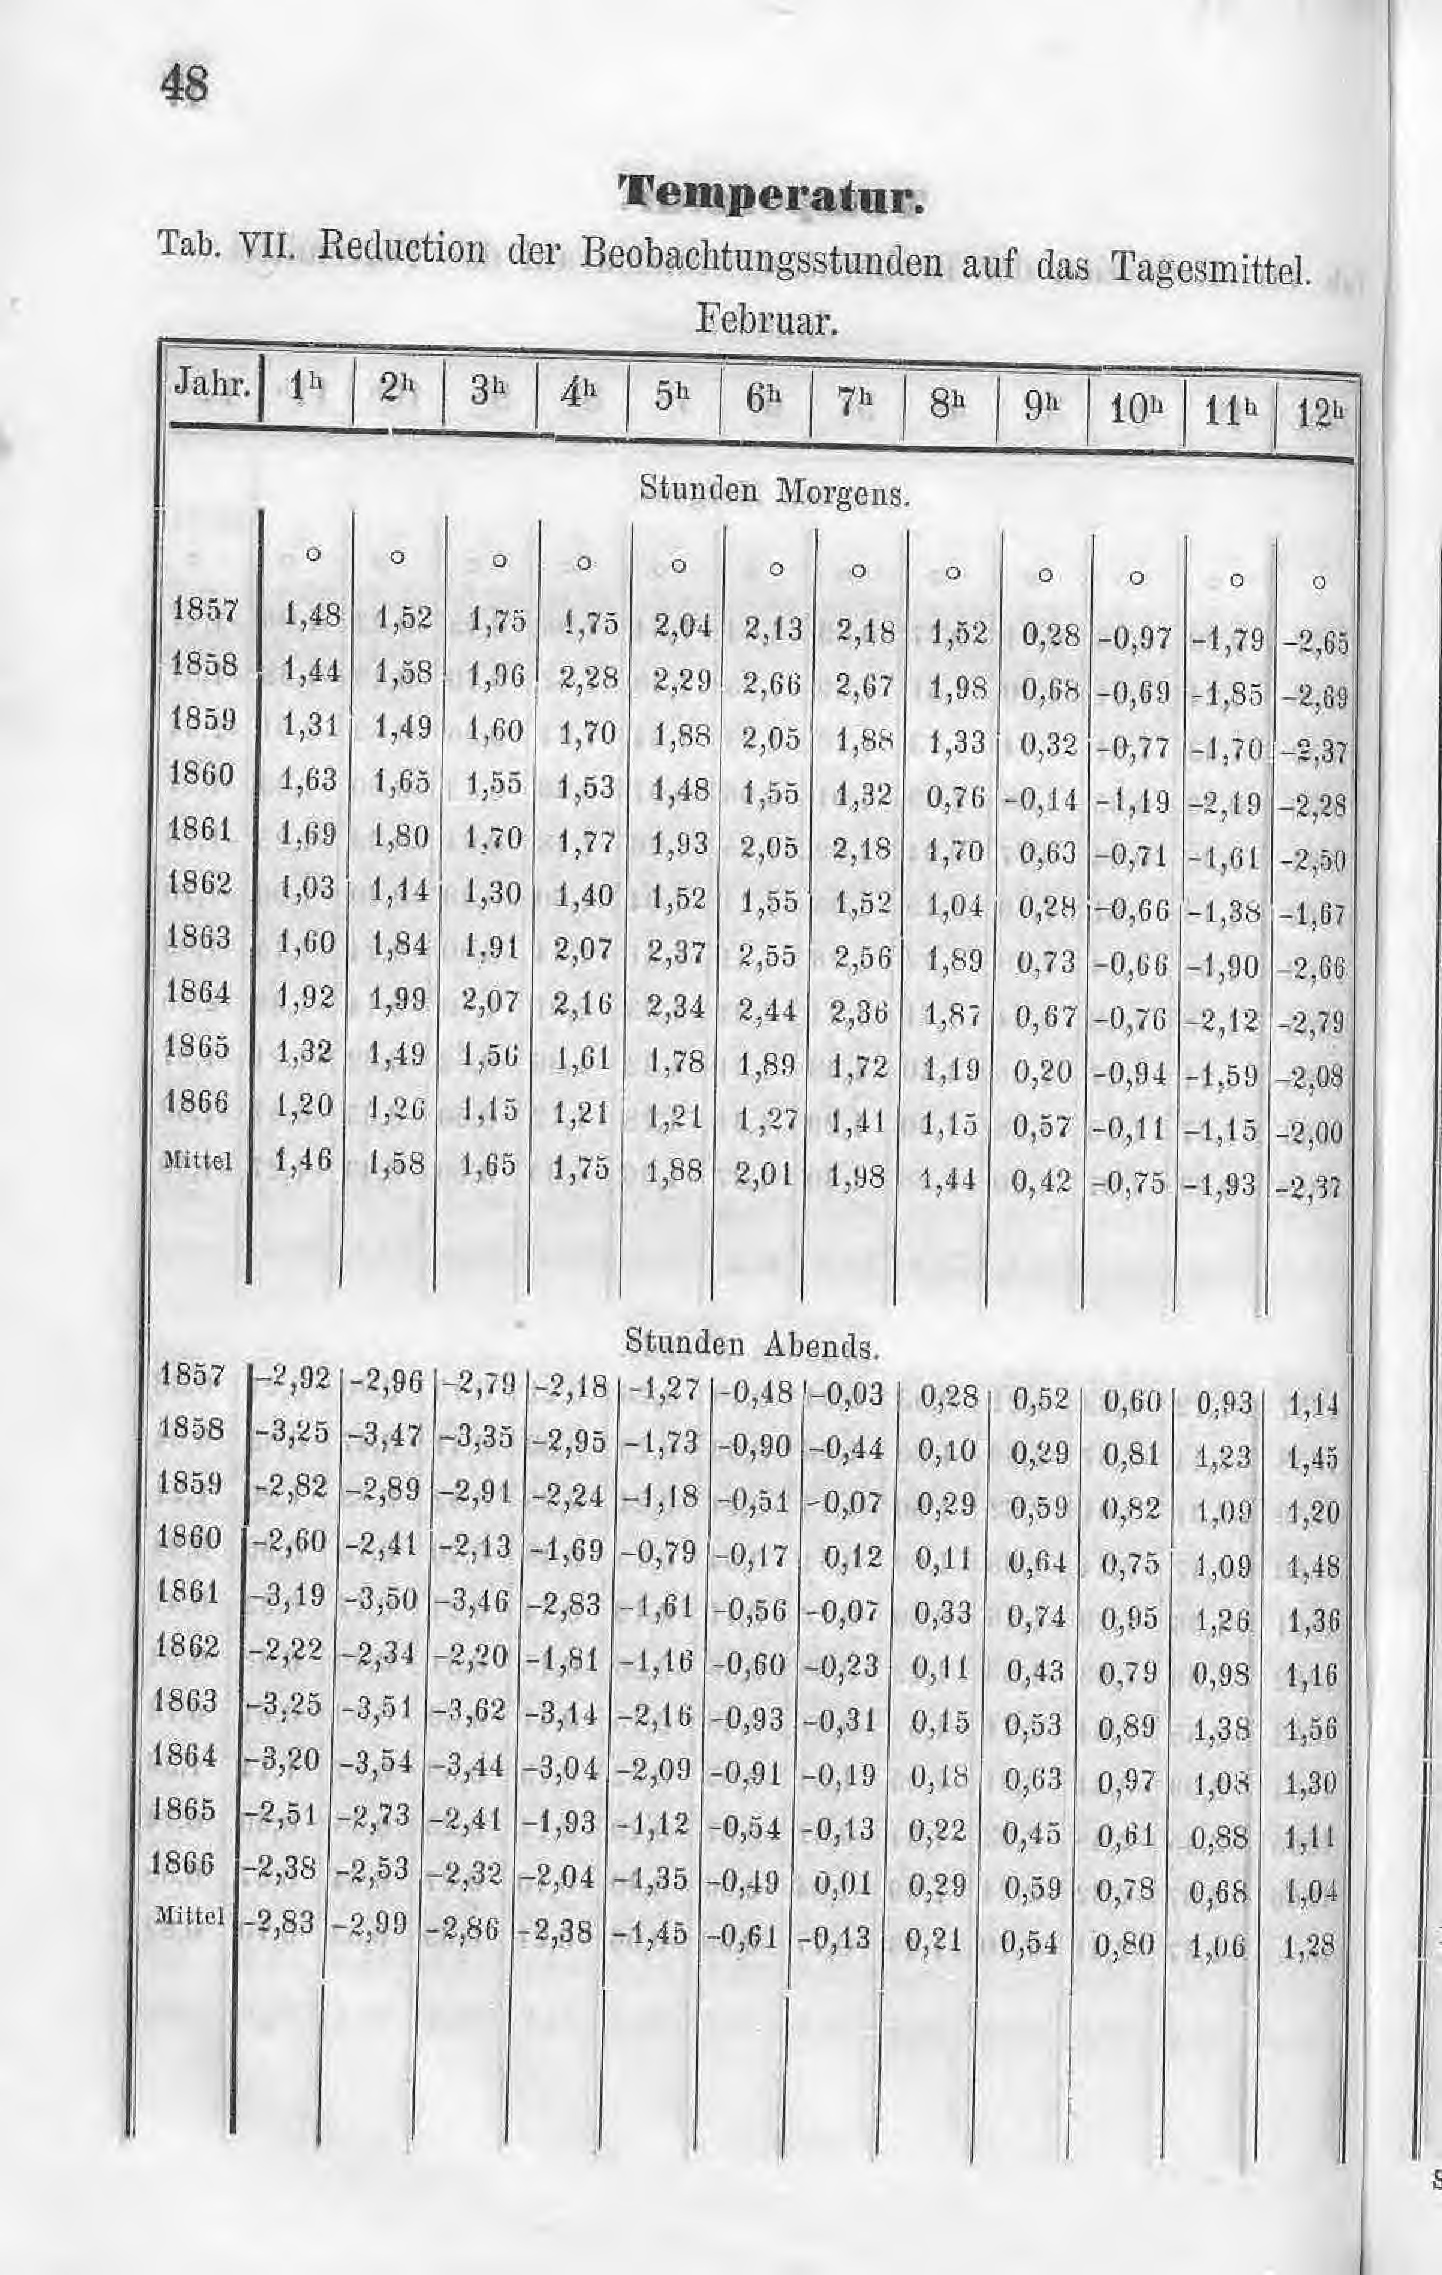 48
Temperatur.
Tab. VII. Reduction der Beobachtungsstunden auf das Tagesmittel.
Februar.
Jahr. 1h 2h 3h 4h 5h 6h 7h 8h 9h 10h 11h 12h
Stunden Morgens.
o o o o o o o o o o o o
1857 1,48 1,52 1,75 1,75 2,04 2,13 2,18 1,52 0,28 -0,97 -1,79 -2,65
1858 1,44 1,58 1,96 2,28 2,29 2,66 2,67 1,98 0,68 -0,69 -1,85 -2,69
1859 1,31 1,49 1,60 1,70 1,88 2,05 1,88 1,33 0,32 -0,77 -1,70 -2,37
1860 1,63 1,65 1,55 1,53 1,48 1,55 1,32 0,76 -0,14 -1,19 -2,19 -2,28
1861 1,69 1,80 1,70 1,77 1,93 2,05 2,18 1,70 0,63 -0,71 -1,61 -2,50
1862 1,03 1,14 1,30 1,40 1,52 1,55 1,52 1,04 0,28 -0,66 -1,38 -1,67
1863 1,60 1,84 1,91 2,07 2,37 2,55 2,56 1,89 0,73 -0,66 -1,90 -2,66
1864 1,92 1,99 2,07 2,16 2,34 2,44 2,36 1,87 0,67 -0,76 -2,12 -2,79
1865 1,32 1,49 1,56 1,61 1,78 1,89 1,72 1,19 0,20 -0,94 -1,59 -2,08
1866 1,20 1,26 1,15 1,21 1,21 1,27 1,41 1,15 0,57 -0,11 -1,15 -2,00
Mittel 1,46 1,58 1,65 1,75 1,88 2,01 1,98 1,44 0,42 -0,75 -1,93 -2,37
Stunden Abends.
1857 -2,92 -2,96 -2,79 -2,18 -1,27 -0,48 -0,03 0,28 0,52 0,60 0,93 1,14
1858 -3,25 -3,47 -3,35 -2,95 -1,73 -0,90 -0,44 0,10 0,29 0,81 1,23 1,45
1859 -2,82 -2,89 -2,91 -2,24 -1,18 -0,51 -0,07 0,29 0,59 0,82 1,09 1,20
1860 -2,60 -2,41 -2,13 -1,69 -0,79 -0,17 0,12 0,11 0,64 0,75 1,09 1,48
1861 -3,19 -3,50 -3,46 -2,83 -1,61 -0,56 -0,07 0,33 0,74 0,95 1,26 1,36
1862 -2,22 -2,34 -2,20 -1,81 -1,16 -0,60 -0,23 0,11 0,43 0,79 0,98 1,16
1863 -3,25 -3,51 -3,62 -3,14 -2,16 -0,93 -0,31 0,15 0,53 0,89 1,38 1,56
1864 -3,20 -3,54 -3,44 -3,04 -2,09 -0,91 -0,19 0,18 0,63 0,97 1,08 1,30
1865 -2,51 -2,73 -2,41 -1,93 -1,12 -0,54 -0,13 0,22 0,45 0,61 0,88 1,11
1866 -2,38 -2,53 -2,32 -2,04 -1,35 -0,49 0,01 0,29 0,59 0,78 0,68 1,04
Mittel -2,83 -2,99 -2,86 -2,38 -1,45 -0,61 -0,13 0,21 0,54 0,80 1,06 1,28